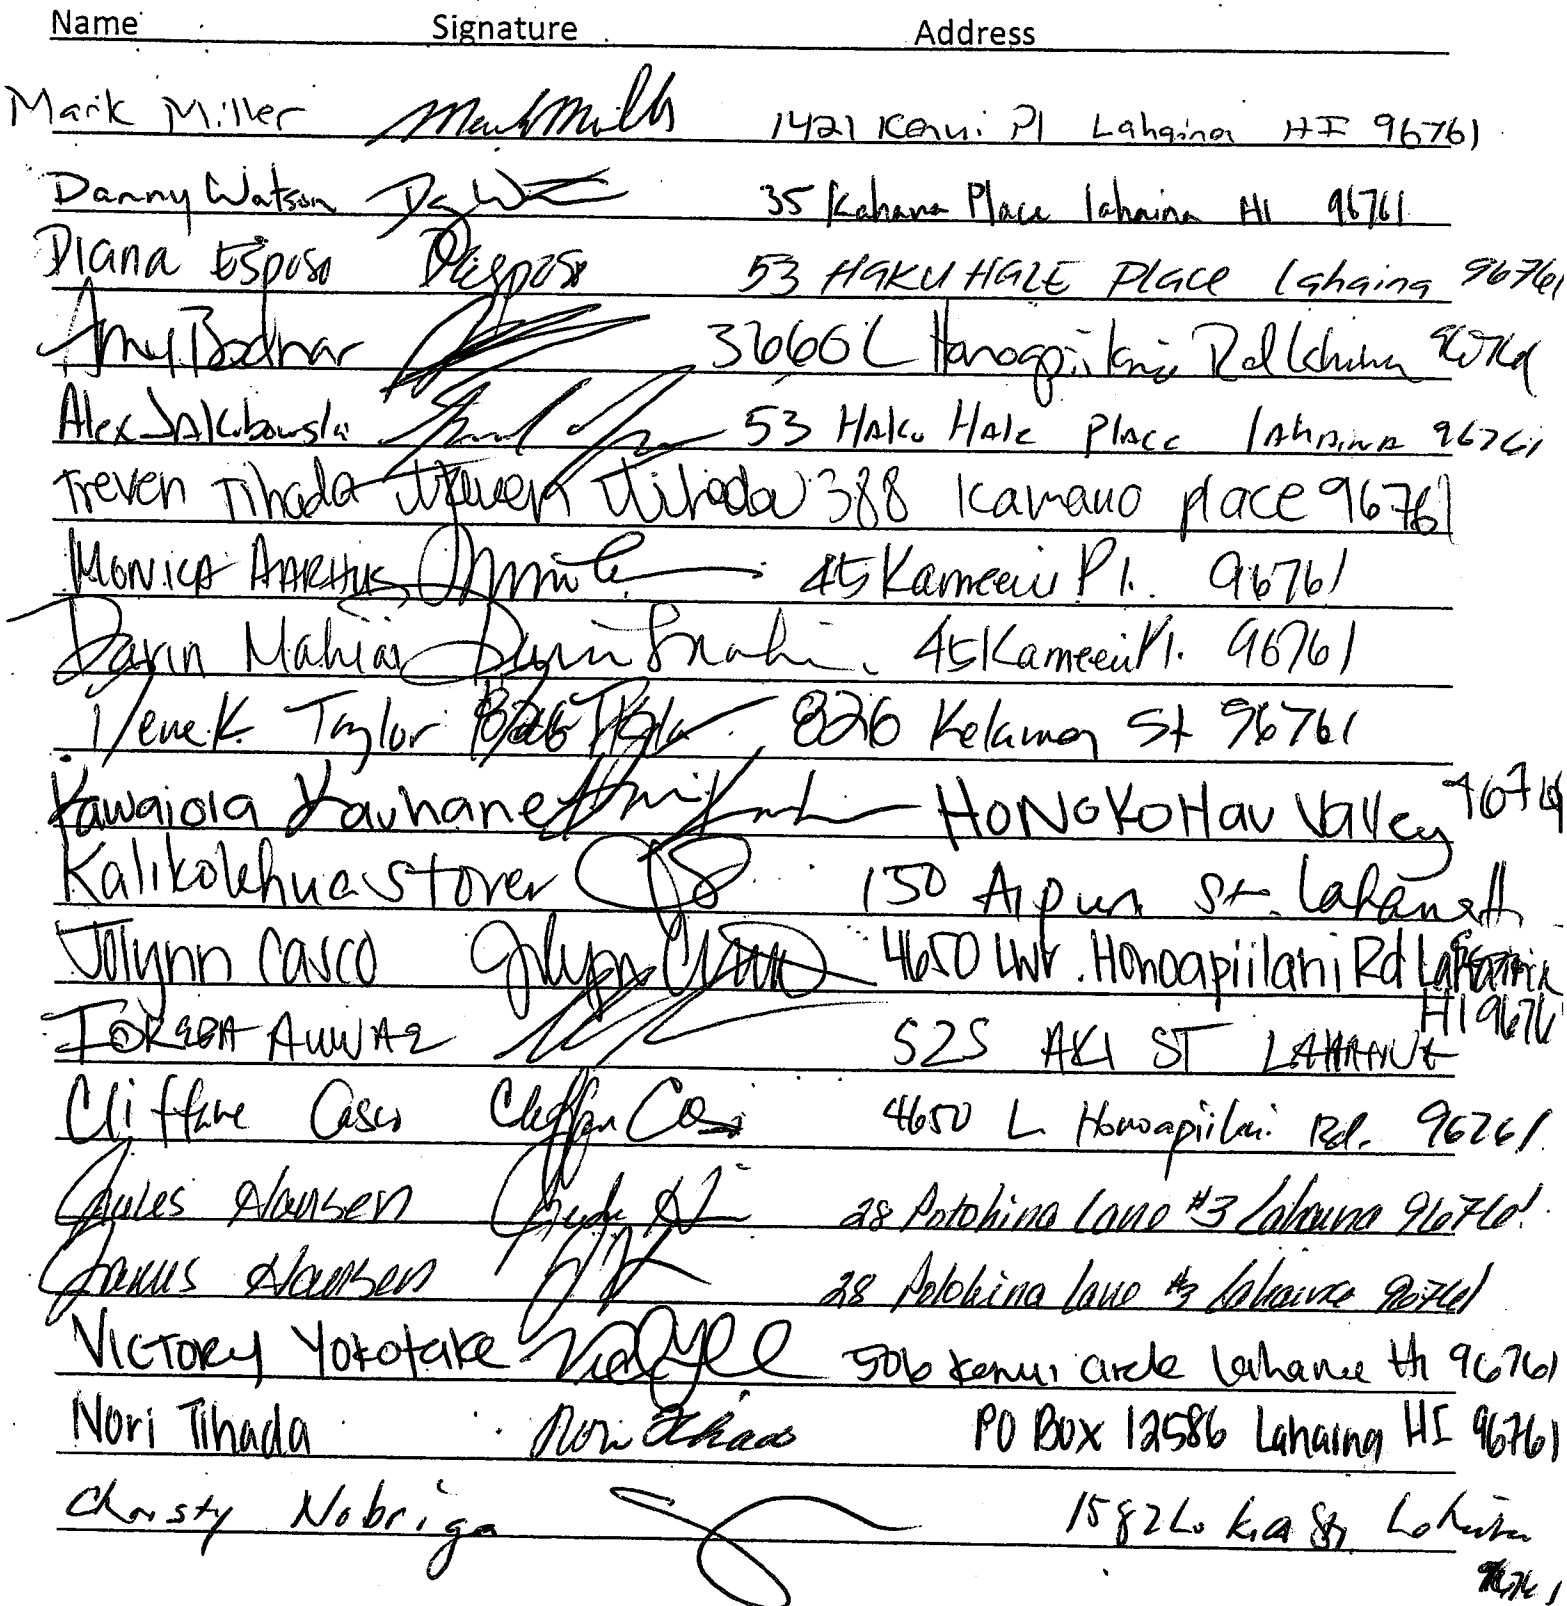 Name Signature Address
Mark Miller Mark Mills 1421 Kenui Pl Lahaina HI 96761
Danny Watson 35 Kahana Place lahaina HI 96761
Diana Esposo DEsposo 53 HAKU HALE Place lahaina 96761
Amy Bodnar 3660 L Rd 96761
Alex Jakubowski 53 Haku Hale Place Lahaina 96761
Treven Tihada Treven Tihada 388 Kamano place 96761
Monica Aarhus 45 Kameeui Pl. 96761
Darin Mahiai 45 Kameeui Pl. 96761
K. Taylor 826 St 96761
Kawaiola Kauhane HONOKOHau Valley 96761
Kalikolehua Storer 150 St.
Jolynn Casco Jolynn Casco 4650 Lwr. Honoapiilani Rd Lahaina
HI 9676
525 AKI ST
Casco 4650 L. Honoapiilani Rd. 96761
Jules Hansen 28 Polohina Lane #3 Lahaina 96761
Hansen 28 Polohina Lane #3 Lahaina 96761
Victory Yokotake 506 Kenui Circle Lahaina HI 96761
Nori Tihada Nori Tihada PO Box 12586 Lahaina HI 96761
Christy Nobriga 1582 St.
96761